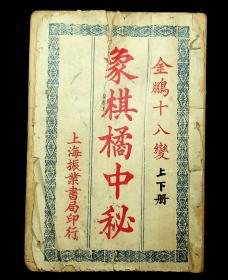 金鵬十八變
上下册
象棋橘中秘
上海振業書局印行